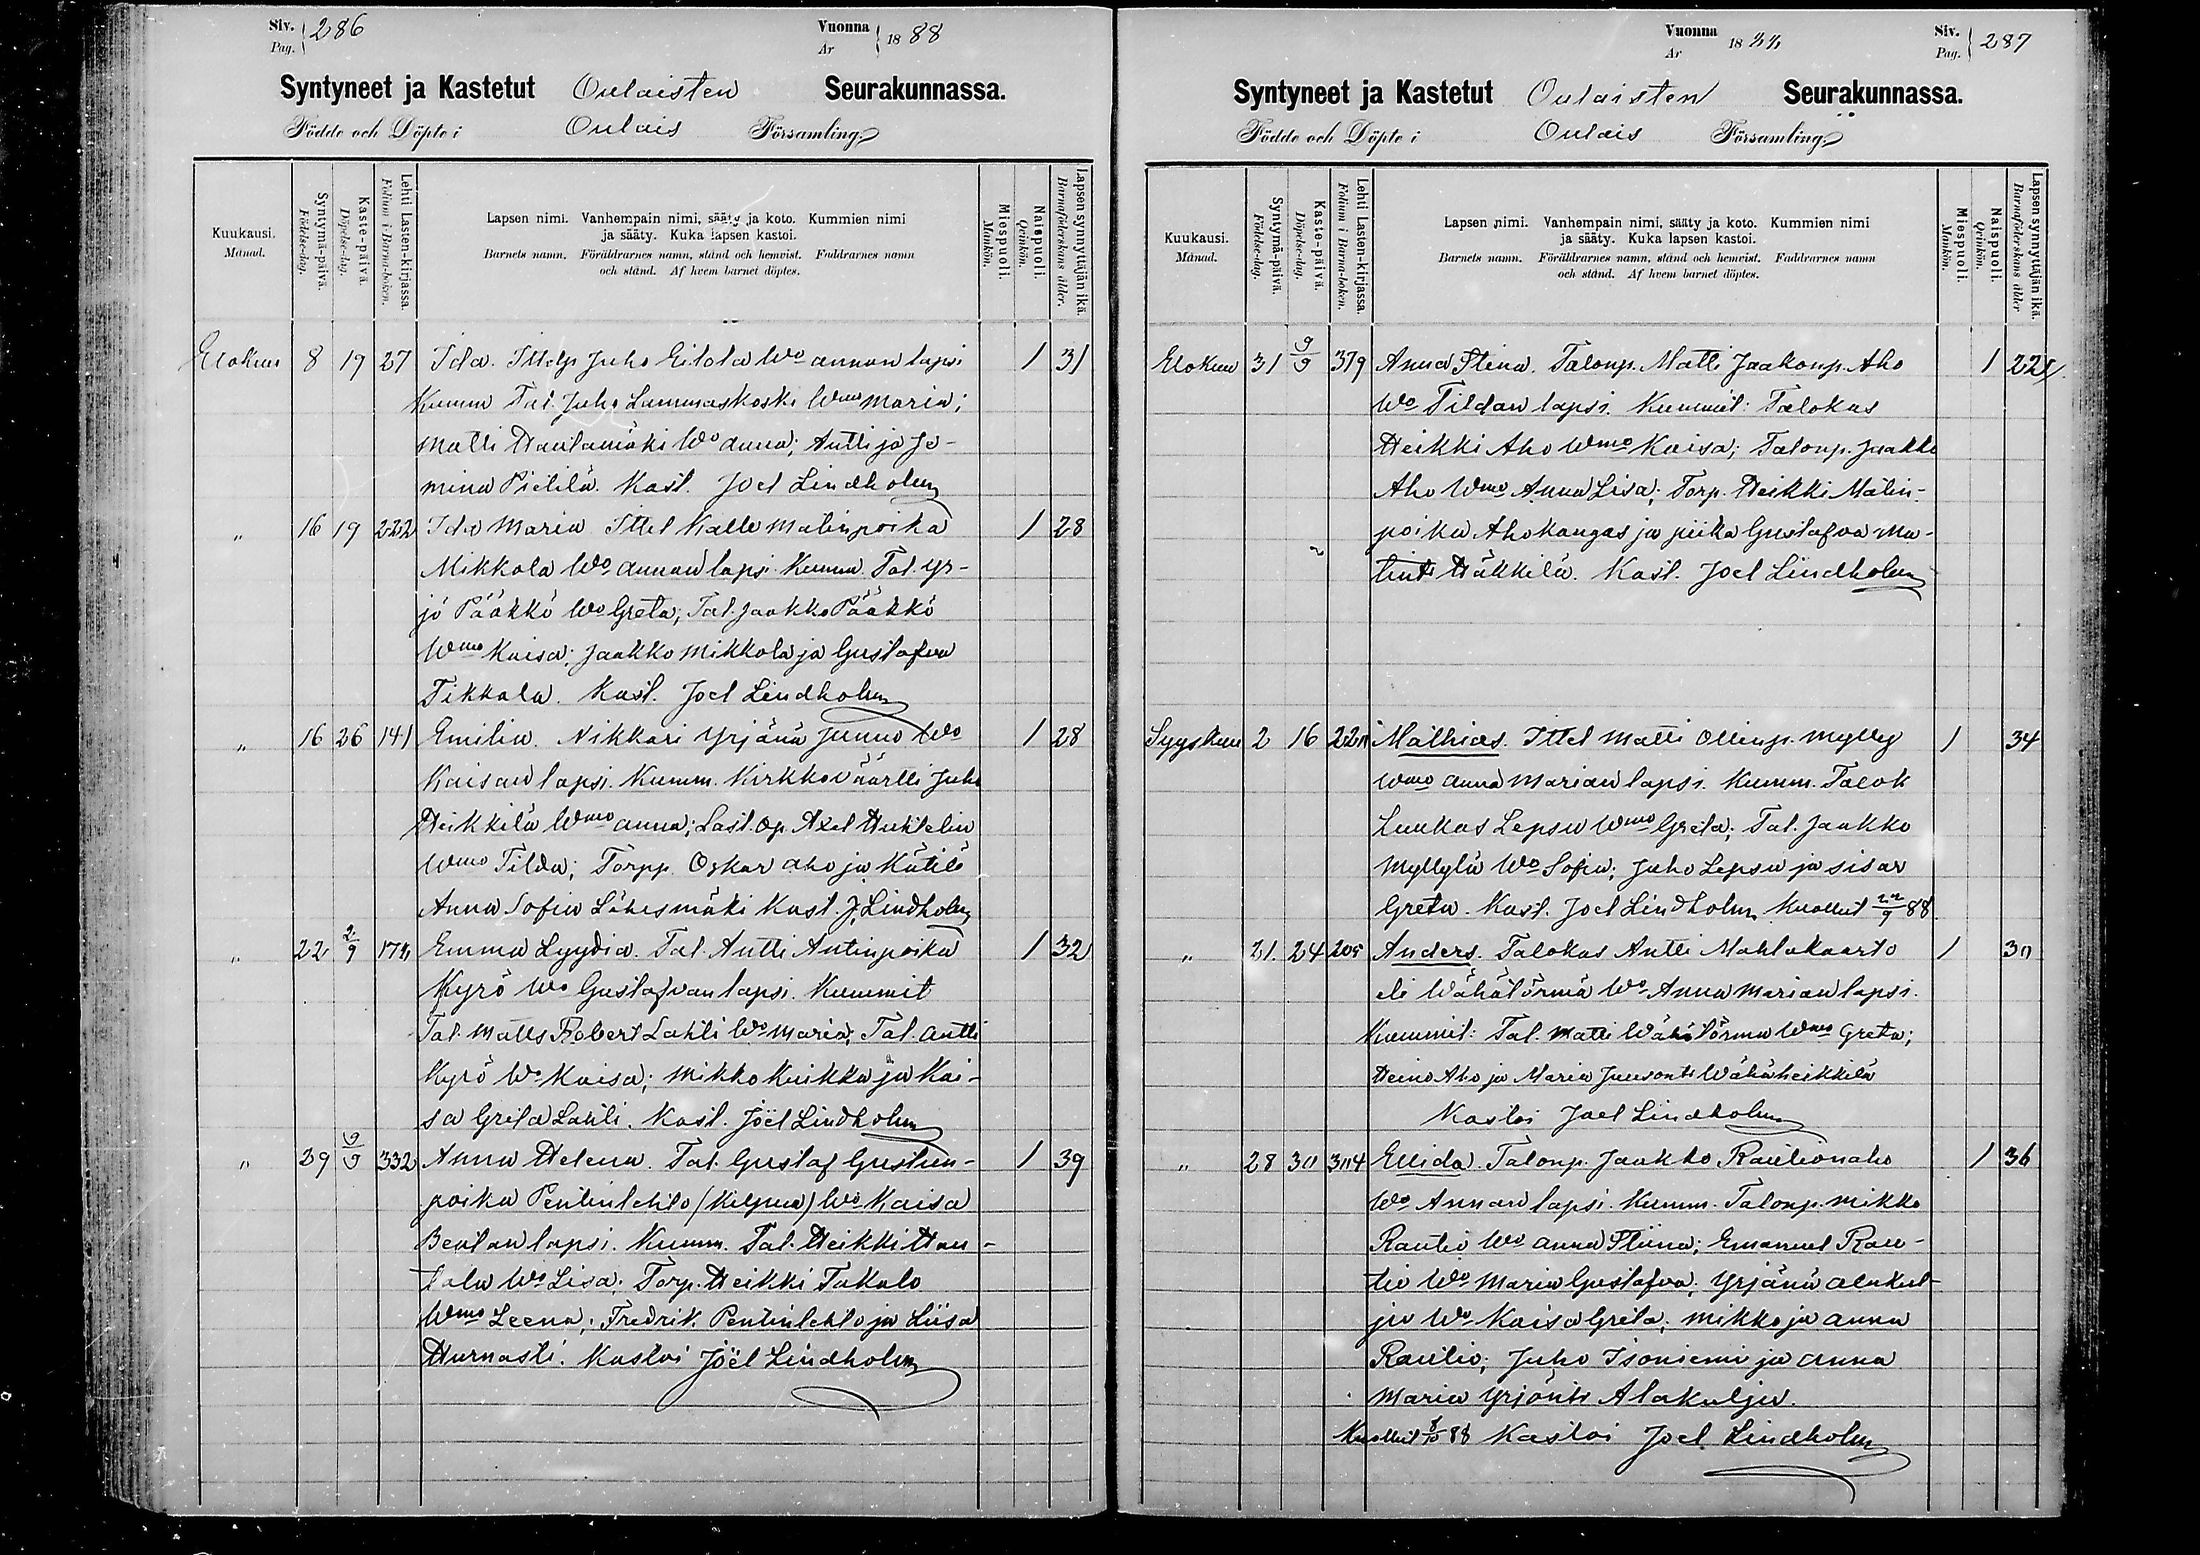 Siv. 286
Pag.
Vuonna 1888
År
Syntyneet ja Kastetut Oulaisten Seurakunnassa.
Födde och Döpte i Oulais Församling
Kuukausi.
Månad.
Syntymä-päivä.
Födelse-dag.
Kaste-päivä.
Döpelse-dag.
Lehti Lasten-kirjassa.
Folium i Barna-boken.
Lapsen nimi. Vanhempain nimi, sääty ja koto. Kummien nimi
ja sääty. Kuka lapsen kastoi.
Barnets namn. Föräldrarnes namn, stånd och hemvist. Faddrarnes namn
och stånd. Af hvem barnet döptes.
Miespuoli.
Mankön.
Naispuoli.
Qvinkön.
Lapsen synnyttäjän ikä.
Barnaföderskans ålder.
Elokuu 8 19 27 Ida. Juho Eilola Wo annan lapsi 1 31
Kumm Tal. Juho Lammaskoski Wmo Maria;
Matti Hautamäki Wo anna; Antti ja Jo-
mina Pietilä. Kast. Joel Lindholm
„ 16 19 222 Ida Maria Ittel Kalle Matinpoika 1 28
Mikkola Wo annan lapsi. Kumm. Tal. Yr-
jö Pääkkö Wo Greta; Tal. Jaakko Pääkkö
Wmo Kaisa; Jaakko Mikkola ja Gustafva
Tikkala. Kast. Joel Lindholm
„ 16 26 141 Emilia. Nikkari Yrjänä Junno Wo 1 28
Kaisan lapsi. Kumm. Kirkkoväärtti Juho
Heikkilä Wmo anna; Last. op. Axel Huhtelin
Wmo Tilda; Torpp. Oskar Aho ja Kätilö
Anna Sofia Lähesmäki Kast. J. Lindholm
„ 22 2/9 174 Emma Lyydia. Tal. Antti Antinpoika 1 32
Kyrö Wo Gustafvan lapsi. Kummit
Tal. Matts Robert Lahti Wo Maria; Tal. Antti
Kyrö Wo Kaisa; Mikko Kuikka ja Kai-
sa Greta Lahti. Kast. Joel Lindholm
„ 29 9/9 332 Anna Helena. Tal. Gustaf Gustun- 1 39
poika Pentinlehto (Kilpua) Wo Kaisa
Beatan lapsi. Kumm. Tal. Heikki Hau-
tala Wo Lisa; Torp. Heikki Takalo
Wmo Leena; Fredrik Pentinlehto ja Liisa
Hurnasti. Kastoi Joël Lindholm
Vuonna 1888
År
Siv. 287
Pag.
Syntyneet ja Kastetut Oulaisten Seurakunnassa.
Födde och Döpte i Oulais Församling
Kuukausi.
Månad.
Syntymä-päivä.
Födelse-dag.
Kaste-päivä.
Döpelse-dag.
Lehti Lasten-kirjassa.
Folium i Barna-boken.
Lapsen nimi. Vanhempain nimi, sääty ja koto. Kummien nimi
ja sääty. Kuka lapsen kastoi.
Barnets namn. Föräldrarnes namn, stånd och hemvist. Faddrarnes namn
och stånd. Af hvem barnet döptes.
Miespuoli.
Mankön.
Naispuoli.
Qvinkön.
Lapsen synnyttäjän ikä.
Barnaföderskans ålder
Elokuu 31 9/9 379 Anna Stina. Talonp. Matti Jaakonp. Aho 1 22
Wo Tildan lapsi. Kummit: Talokas
Heikki Aho Wmo Kaisa; Talonp. Jaakko
Aho Wmo Anna Lisa; Torp. Heikki Matin-
poika Ahokangas ja piika Gustafva Ma-
tint. Häkkilä. Kast. Joel Lindholm
Syyskuu 2 16 220 Mathias. Ittel Matti Ollinp. Mylly 1 34
Wmo Anna Marian lapsi. Kumm. Talok
Luukas Lepsu Wmo Greta; Tal. Jaakko
Myllylä Wo Sofia; Juho Lepsu ja sisar
Greta. Kast. Joel Lindholm Kuollut 22/9 88
„ 21. 24 205 Anders. Talokas Antti Mahlakaarto 1 30
eli Wähätörmä Wo Anna Marian lapsi.
Kummit: Tal. Matti Wähätörmä Wmo Greta;
Heino Aho ja Maria Juusont. Wähäheikkilä
Kastoi Joel Lindholm
„ 28 30 304 Ellida. Talonp. Jaakko Rautionaho 1 36
Wo Annan lapsi. Kumm. Talonp. Mikko
Rautio Wo Anna Stiina; Emanuel Rau-
tio Wo Maria Gustafva; Yrjänä Alakul-
ju Wo Kaisa Greta; Mikko ja Anna
Rautio; Juho Isoniemi ja Anna
Maria Yrjönt. Alakulju.
Kuollut 8/10 88 Kastoi Joel Lindholm